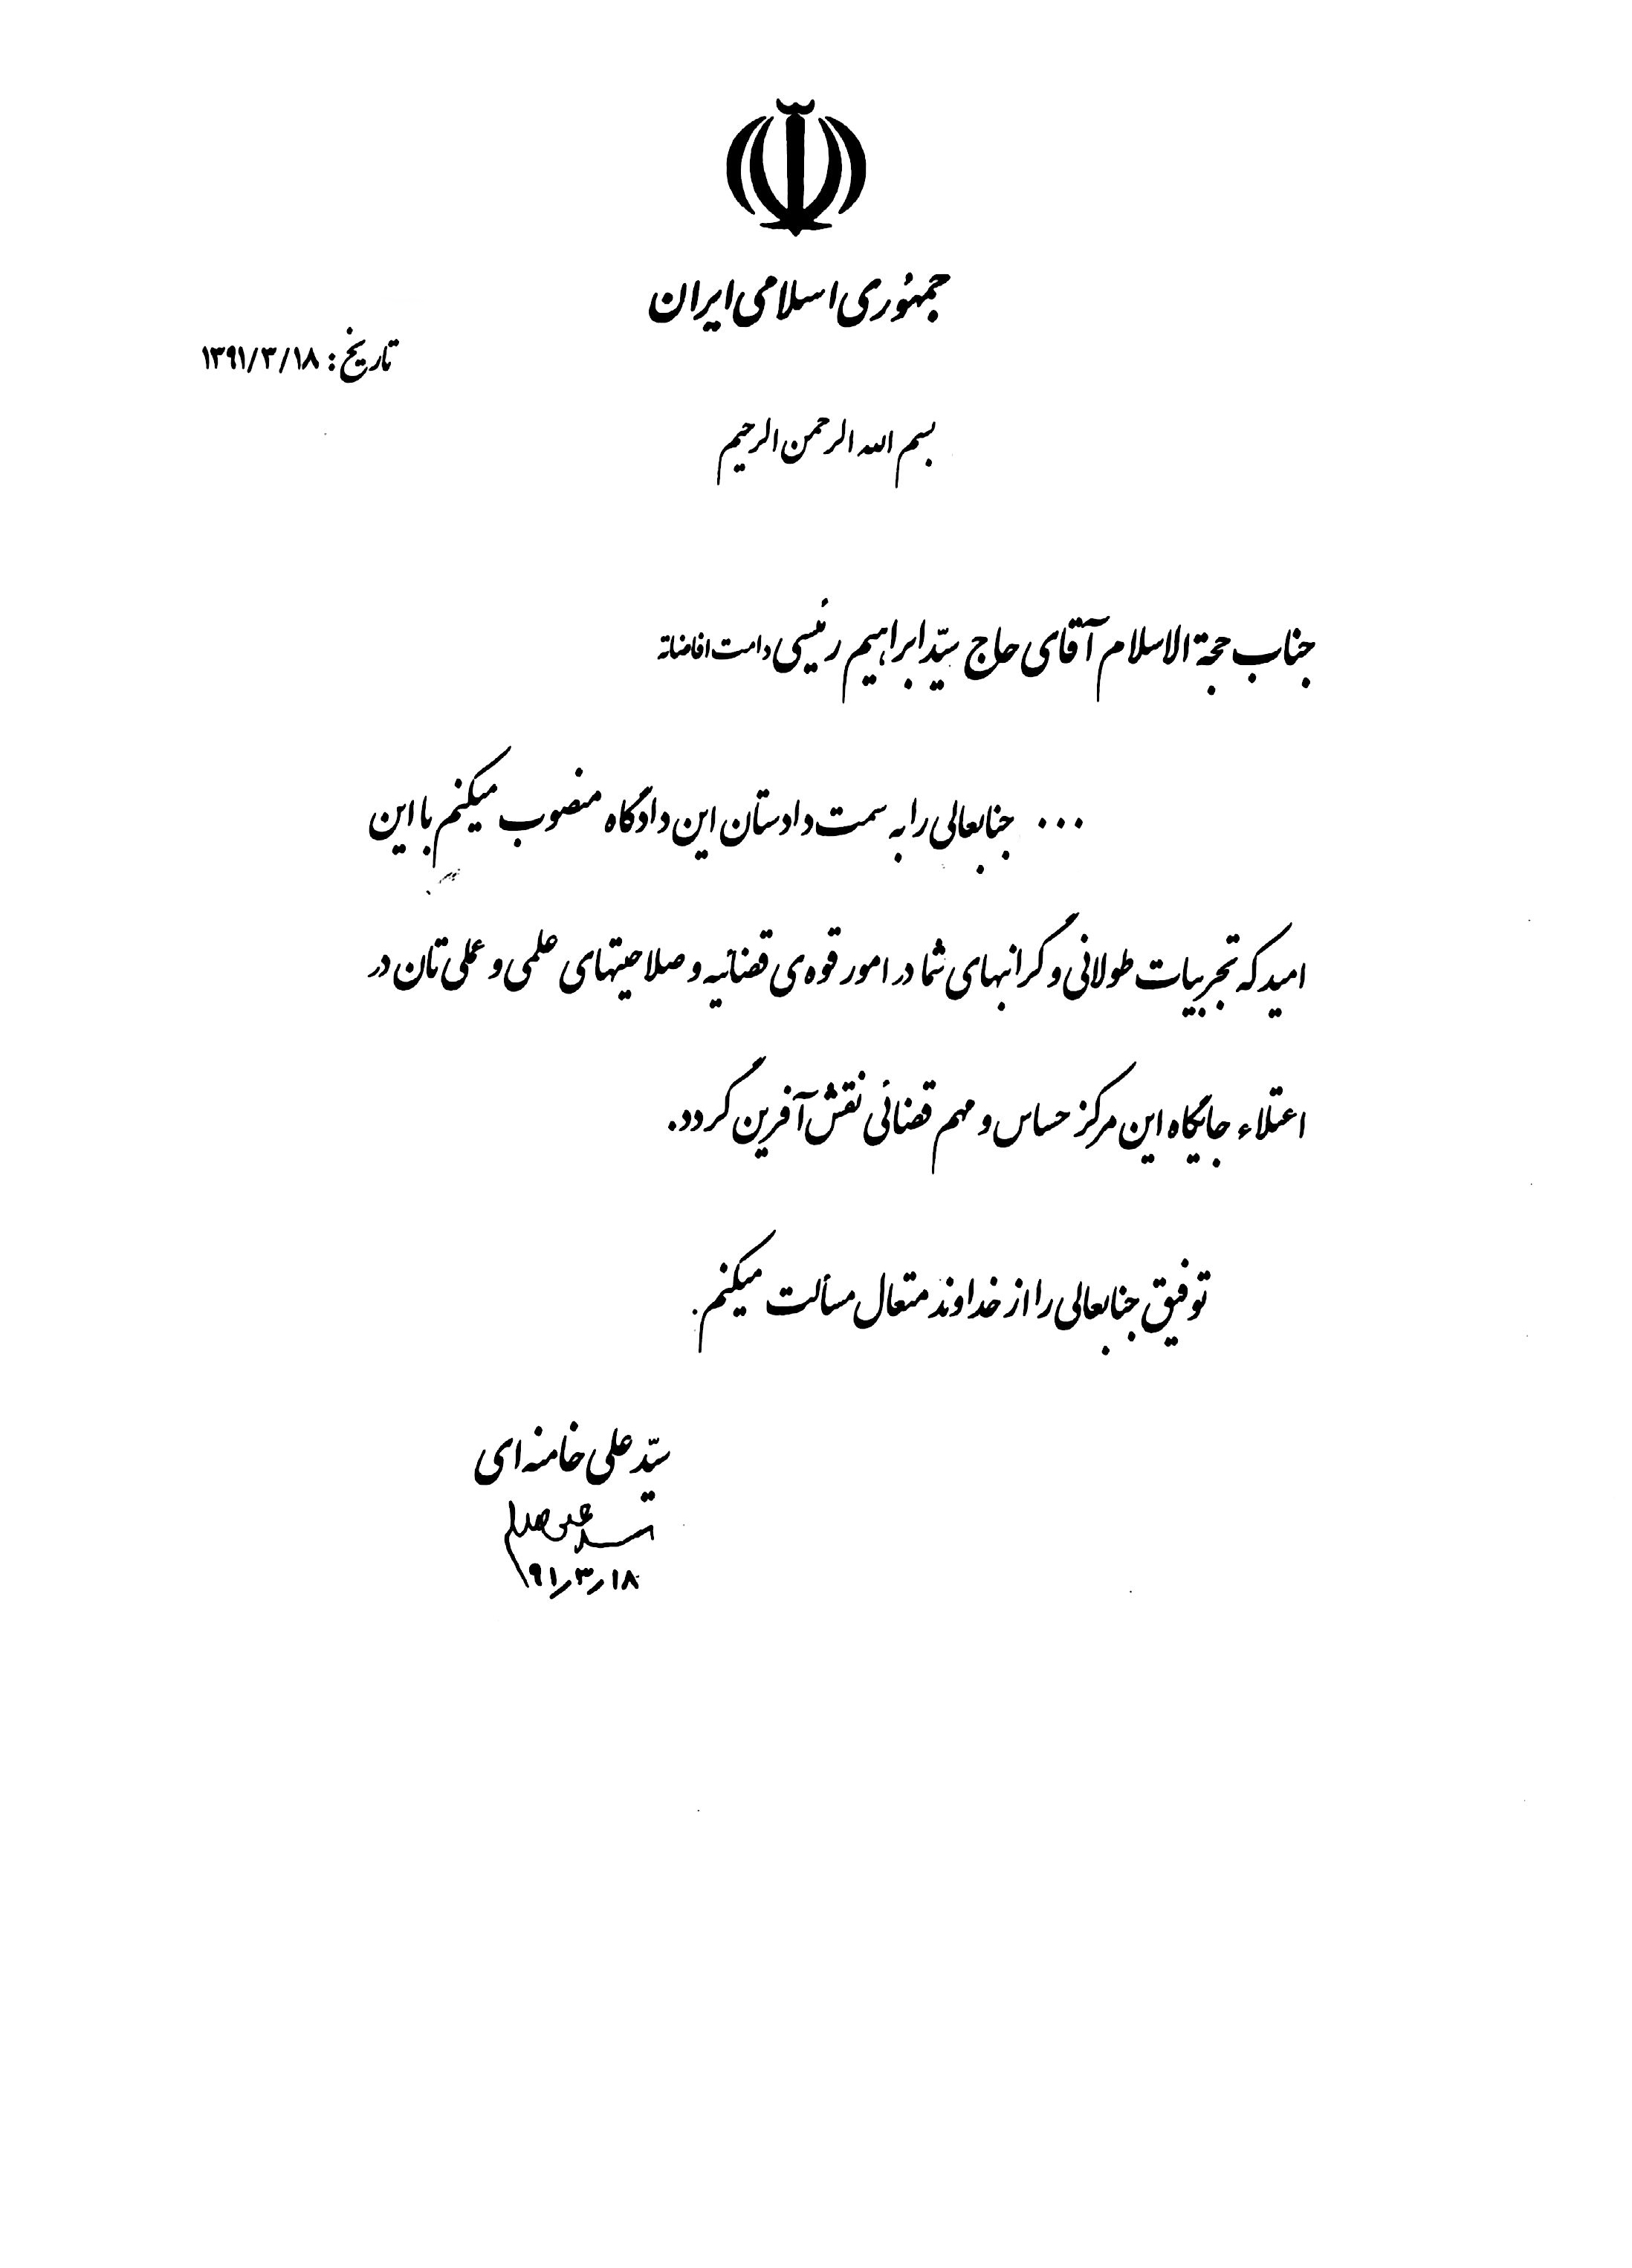 جمهوری اسلامی ایران
تاریخ: ۱۳۹۱/۳/۱۸
بسم الله الرحمن الرحیم
جناب حجة الاسلام آقای حاج سیّد ابراهیم رئیسی دامت افاضاته
... جنابعالی را به سمت دادستان این دادگاه منصوب میکنم با این
امید که تجربیات طولانی و گرانبهای شما در امور قوه‌ی قضائیه و صلاحیتهای علمی و عملی تان در
اعتلاء جایگاه این مرکز حساس و مهم قضائی نقش آفرین گردد.
توفیق جنابعالی را از خداوند متعال مسألت میکنم.
سیّد علی خامنه ای
۹۱/۳/۱۸